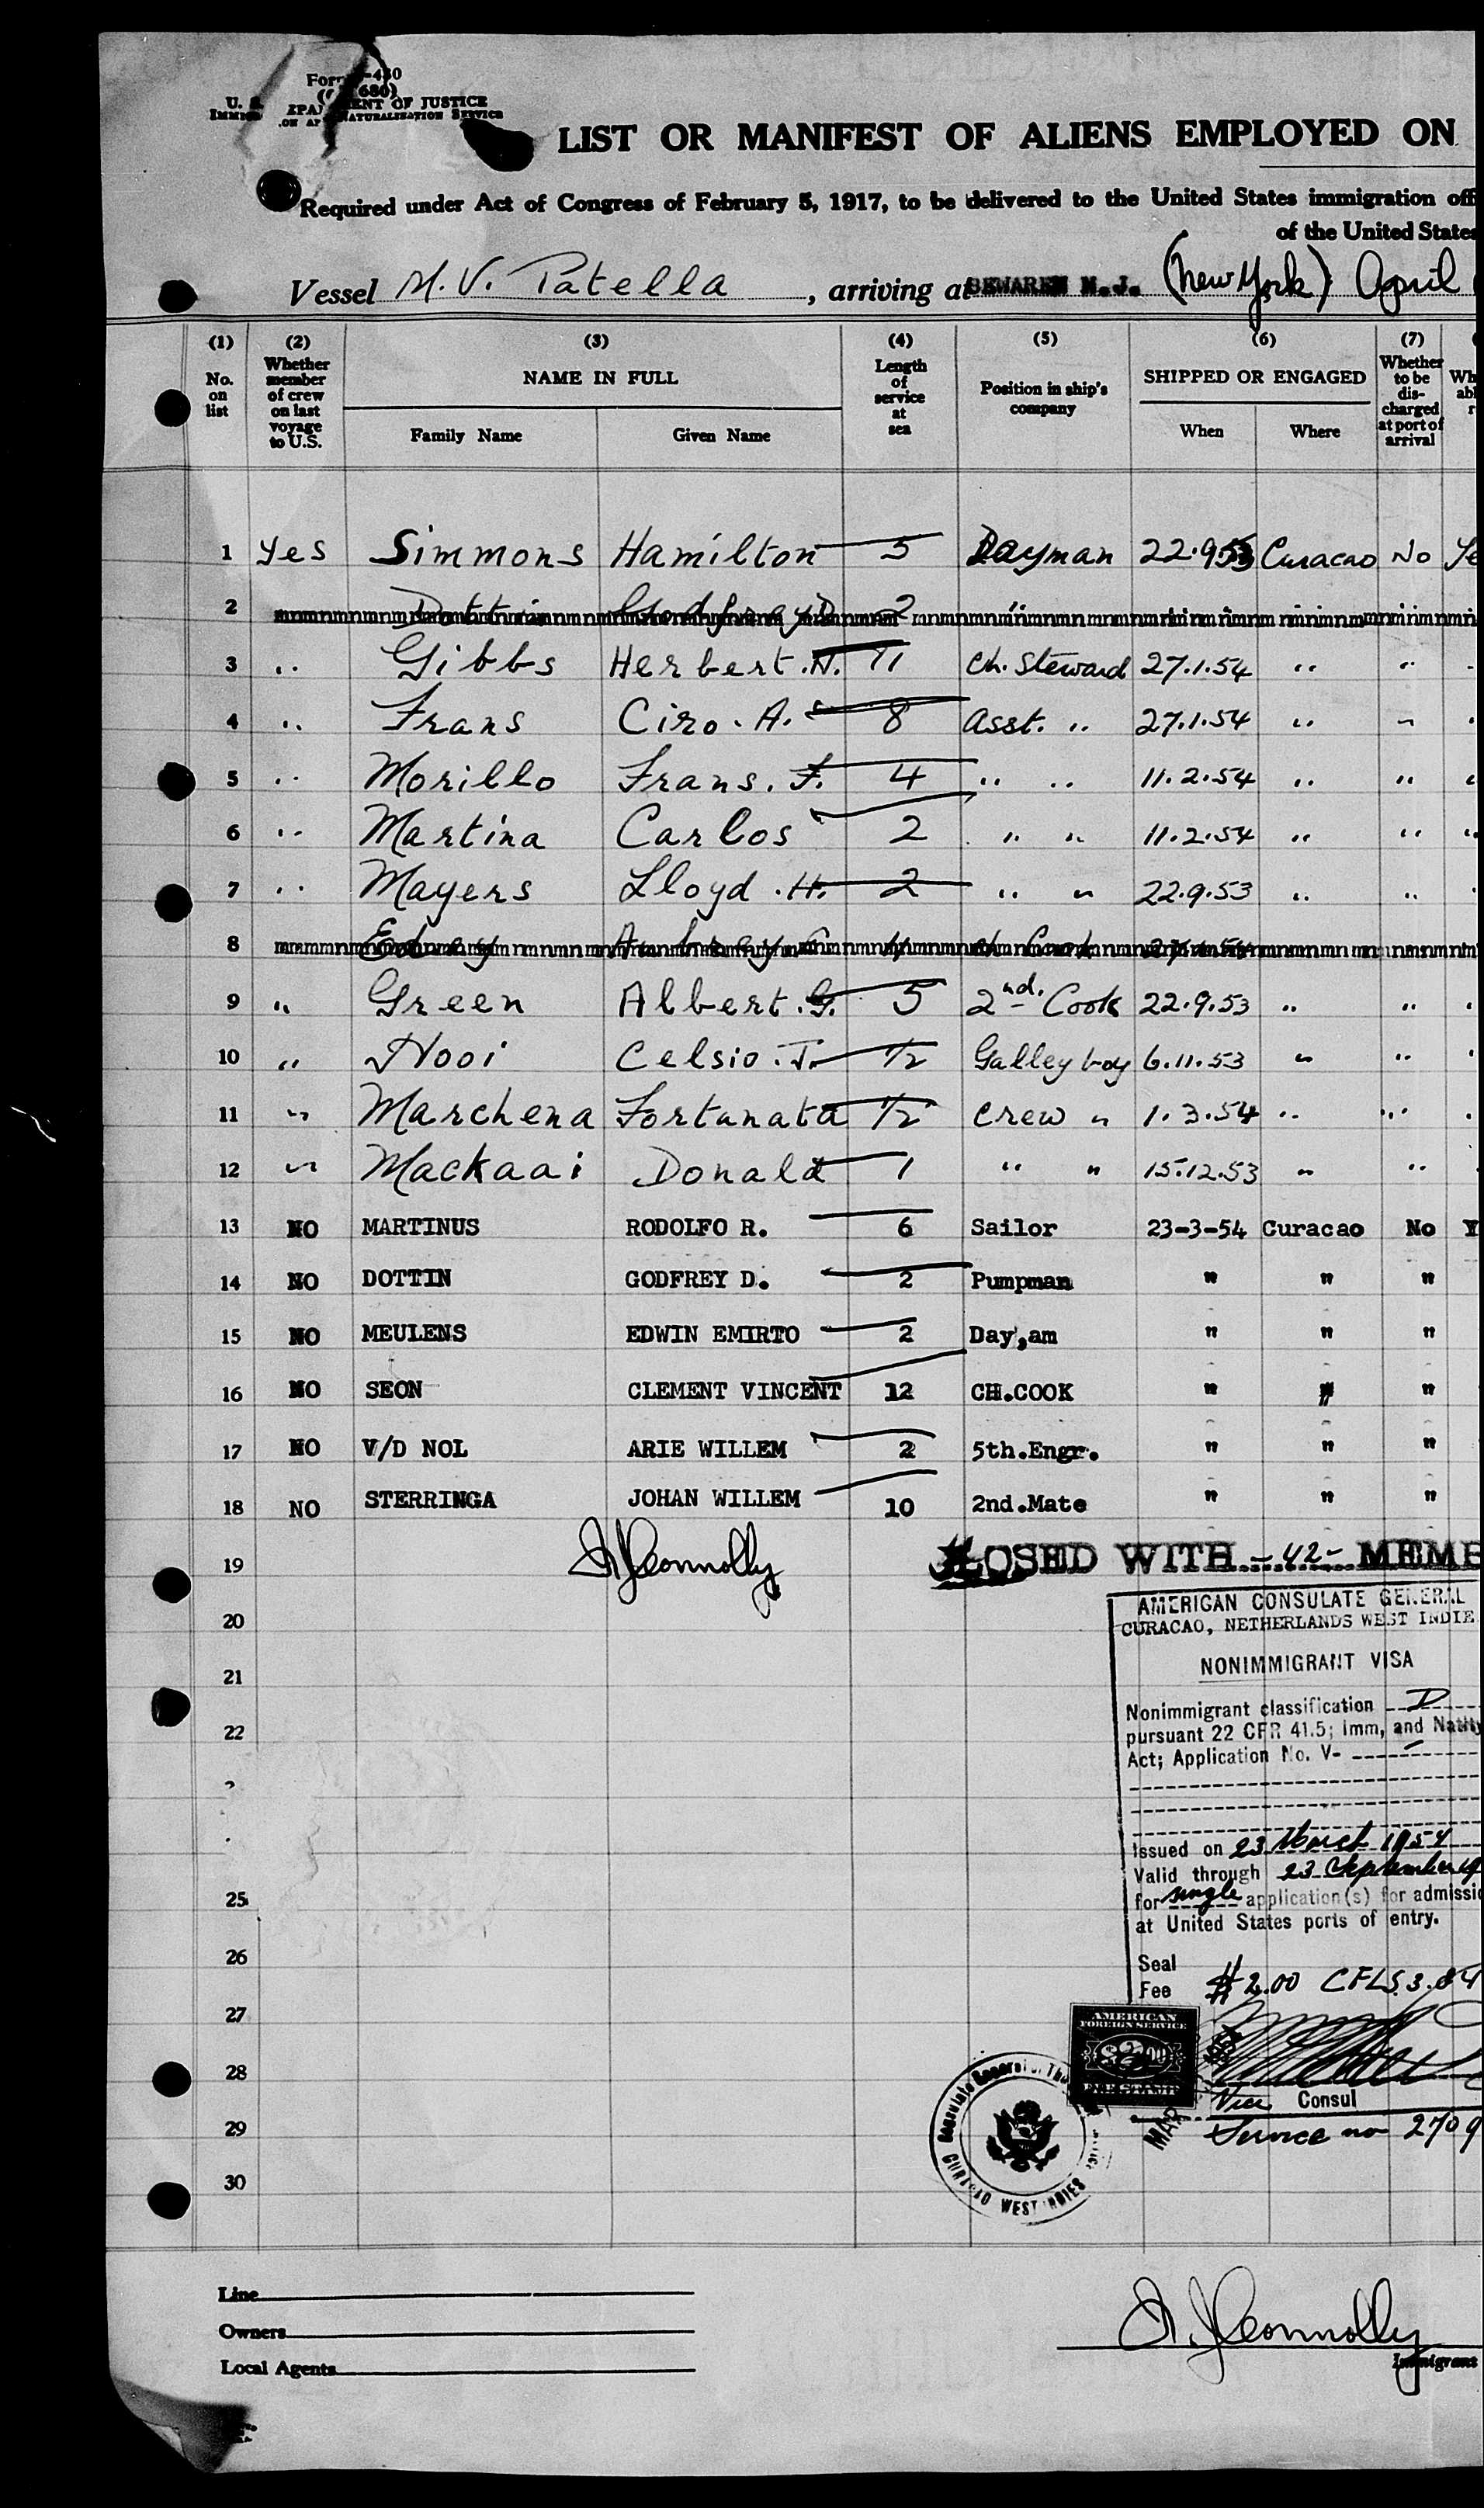 Form -480
( 680)
U. S. EPARTMENT OF JUSTICE
IMMIG ON AND NATURALIZATION SERVICE
LIST OR MANIFEST OF ALIENS EMPLOYED ON
Required under Act of Congress of February 5, 1917, to be delivered to the United States immigration off
of the United States
Vessel M.V. Patella, arriving at SEWAREN N.J. (New York) April
(1) (2) (3) (4) (5) (6) (7)
No. on list
Whether member of crew on last voyage to U.S.
NAME IN FULL
Family Name Given Name
Length of service at sea
Position in ship's company
SHIPPED OR ENGAGED
When Where
Whether to be discharged at port of arrival
1 Yes Simmons Hamilton 5 Dayman 22.9.53 Curacao No Ye
2 Dottin Godfrey D. 2 " " " "
3 " Gibbs Herbert.N. 11 Ch. Steward 27.1.54 " "
4 " Frans Ciro.A. 8 Asst. " 27.1.54 " "
5 " Morillo Frans.F. 4 " " 11.2.54 " "
6 " Martina Carlos 2 " " 11.2.54 " "
7 " Mayers Lloyd.H. 2 " " 22.9.53 " "
8 Ch. Cook
9 " Green Albert.G. 5 2nd. Cook 22.9.53 " "
10 " Hooi Celsio.J. 1/2 Galley boy 6.11.53 " "
11 " Marchena Fortunata 1/2 Crew " 1.3.54 " "
12 " Mackaai Donald 1 " " 15.12.53 " "
13 NO MARTINUS RODOLFO R. 6 Sailor 23-3-54 Curacao No Y
14 NO DOTTIN GODFREY D. 2 Pumpman " " "
15 NO MEULENS EDWIN EMIRTO 2 Day,am " " "
16 NO SEON CLEMENT VINCENT 12 CH.COOK " " "
17 NO V/D NOL ARIE WILLEM 2 5th.Engr. " " "
18 NO STERRINGA JOHAN WILLEM 10 2nd.Mate " " "
19 Connolly CLOSED WITH -42- MEMB
20
21
22
25
26
27
28
29
30
AMERICAN CONSULATE GENERAL
CURACAO, NETHERLANDS WEST INDIE
NONIMMIGRANT VISA
Nonimmigrant classification D
pursuant 22 CFR 41.5; Imm, and Natlty
Act; Application No. V-
Issued on 23 March 1954
Valid through 23 September 19
for single application(s) for admissio
at United States ports of entry.
Seal
Fee $2.00 CFLS 3.84
AMERICAN
FOREIGN SERVICE
$2.00
FEE STAMP
Vice Consul
Service no 2709
CURACAO WEST INDIES
Line
Owners
Local Agents
Connolly
Immigrant